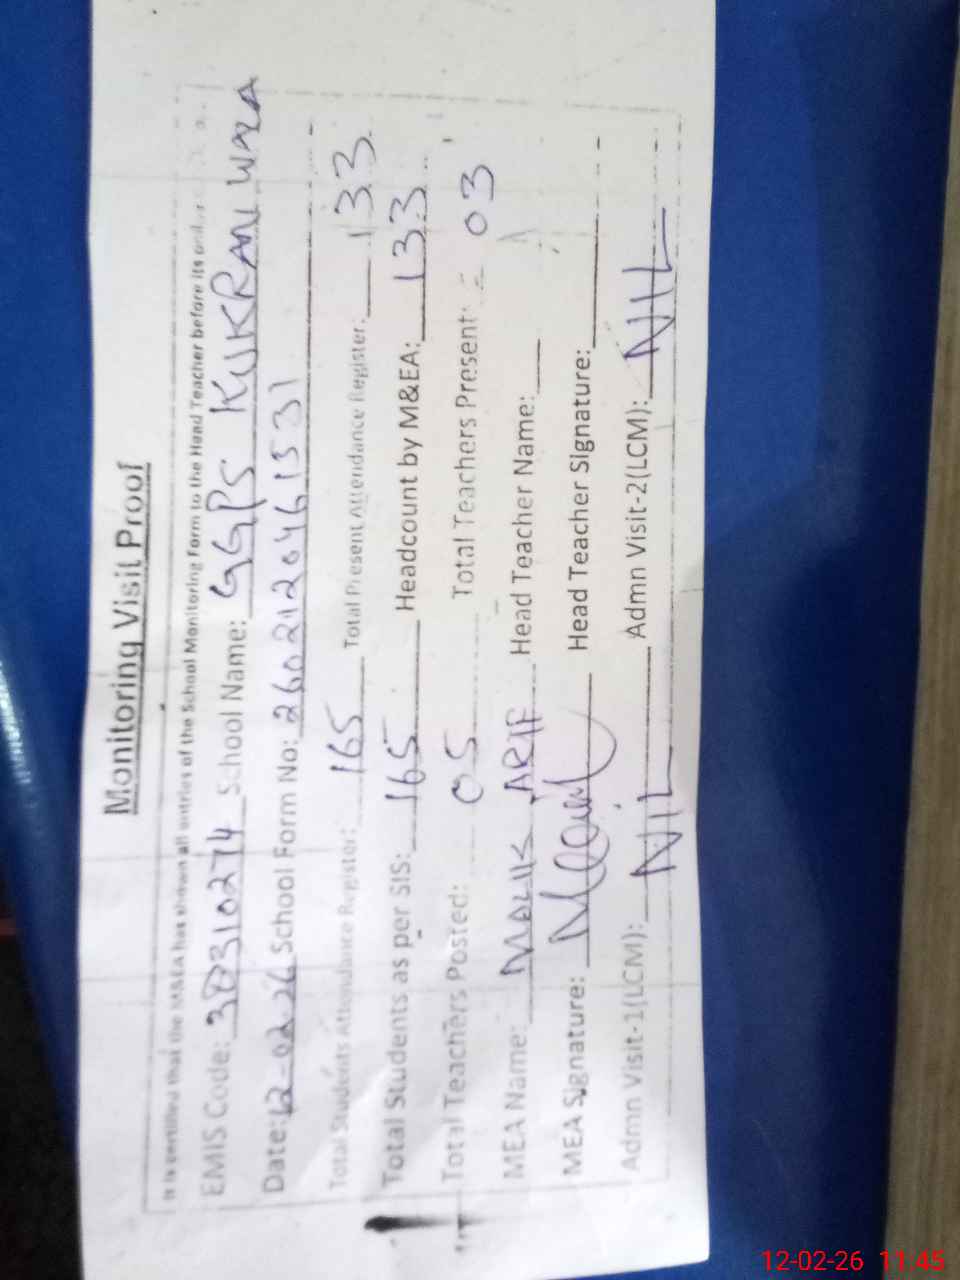 Monitoring Visit Proof
It is certified that the M&EA has shown all entries of the School Monitoring Form to the Head Teacher before its
EMIS Code: 38310274 School Name: GGPS KUKRANI WALA
Date: 12-02-26 School Form No: 2602120461531
Total Students Attendance Register: 165 Total Present Attendance Register: 133
Total Students as per SIS: 165 Headcount by M&EA: 133
Total Teachers Posted: 05 Total Teachers Present: 03
MEA Name: MALIK ARIF Head Teacher Name:
MEA Signature: Head Teacher Signature:
Admn Visit-1(LCM): NIL Admn Visit-2(LCM): NIL
12-02-26 11:45